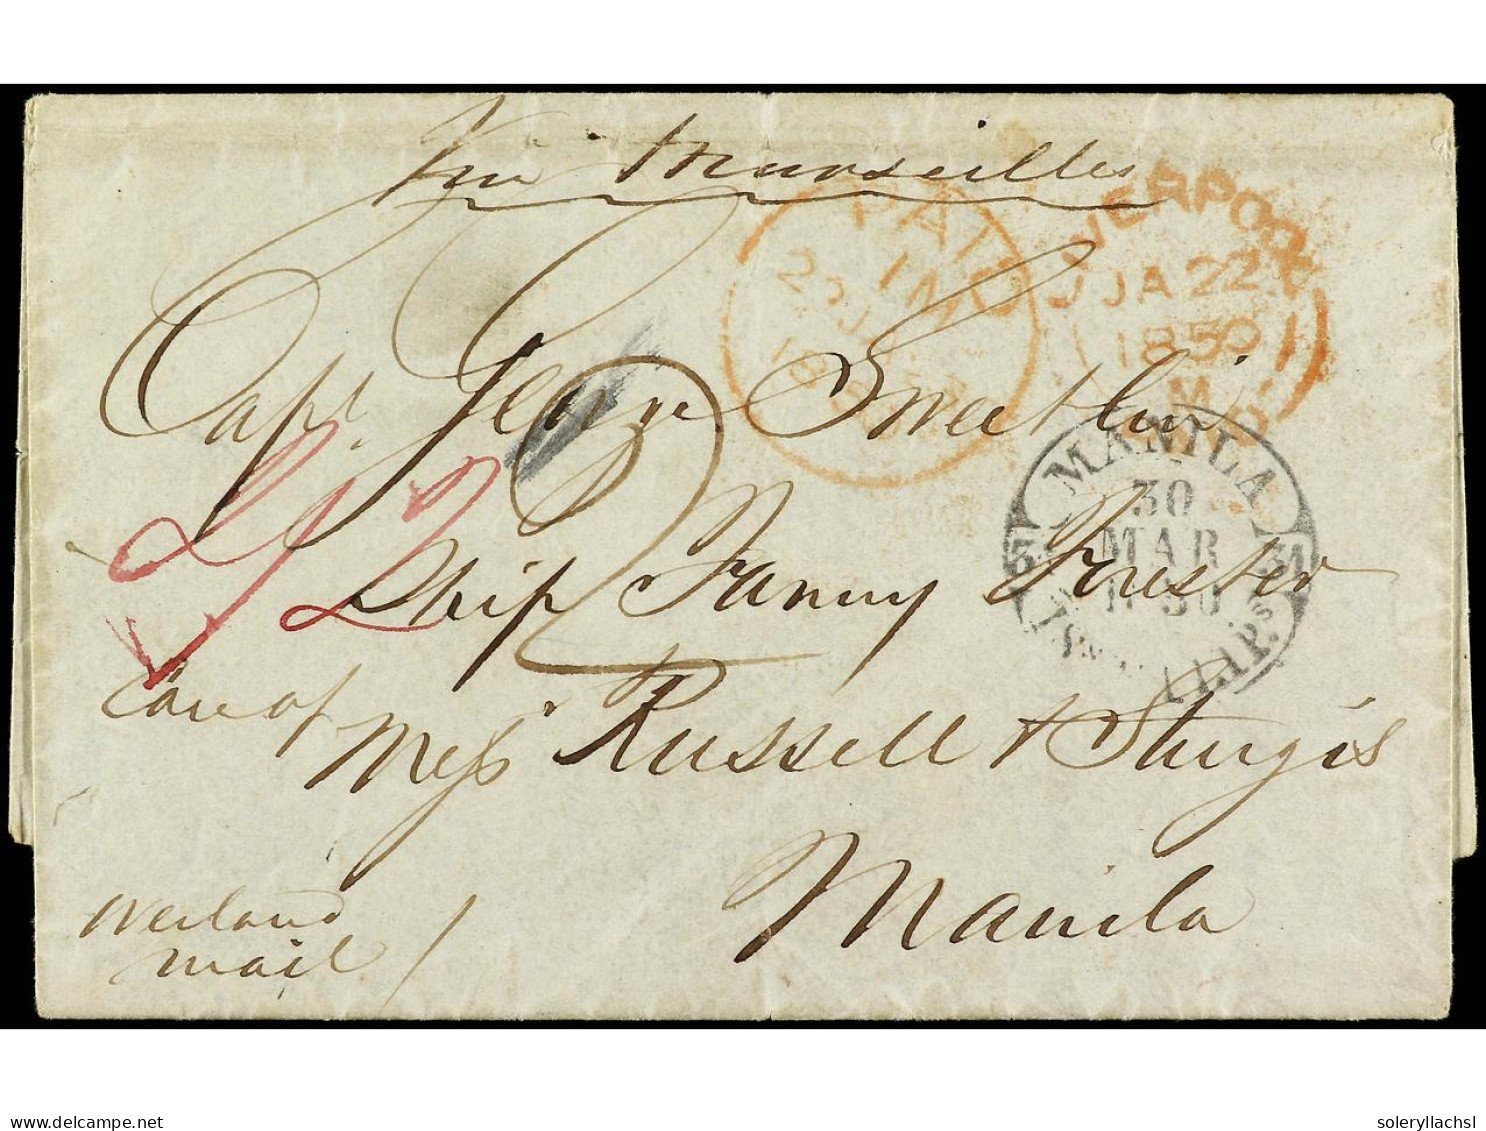 Via Marseilles
PAID
IN
22 JA 22
1850
LIVERPOOL
JA 22
1850
MANILA
30
MAR
1850
Capt. George Sweetlin
Ship Fanny Forester
Care of
Mess Russell & Sturgis
Manila
Overland
mail
delcampe.net
soleryllachsl